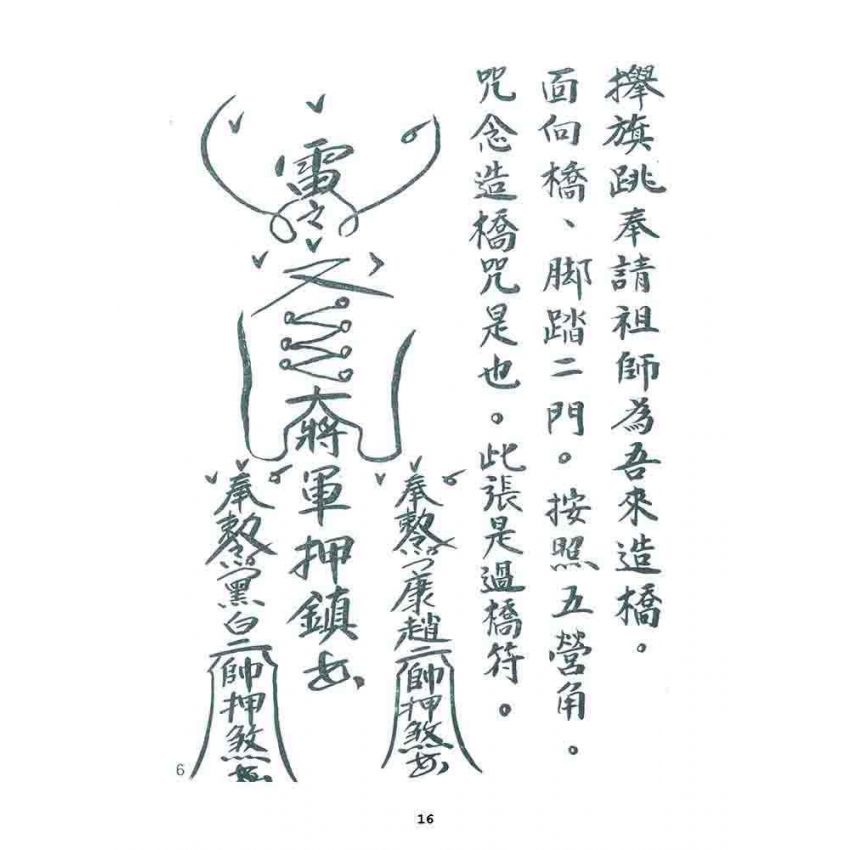 攑旗跳奉請祖師為吾來造橋。
面向橋、脚踏二門。按照五營角。
咒念造橋咒是也。此張是過橋符。
奉勅康趙二帥押煞
雷令
大將軍押鎮
奉勅黑白二帥押煞
6
16